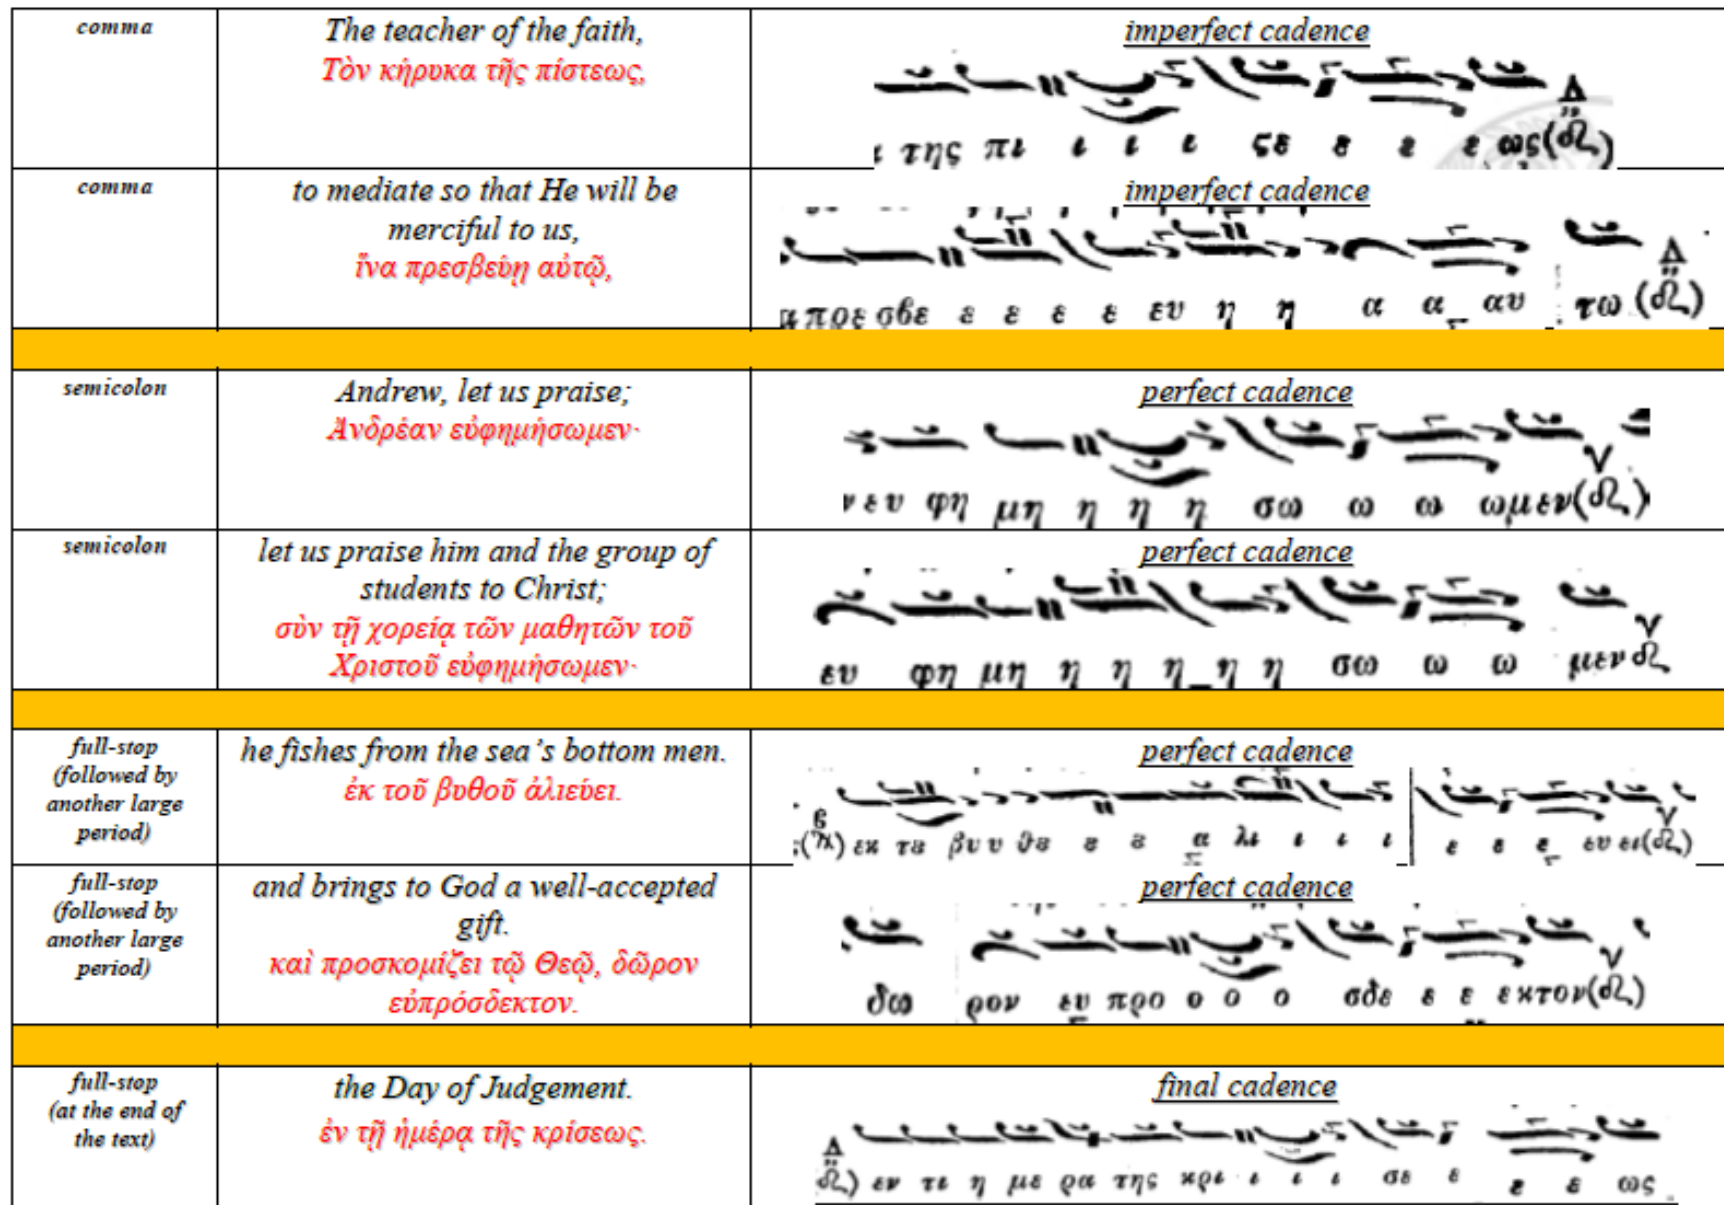 comma
The teacher of the faith,
Τὸν κήρυκα τῆς πίστεως,
imperfect cadence
της πι ι ι ι ςε ε ε ε ως(
comma
to mediate so that He will be
merciful to us,
ἵνα πρεσβεύῃ αὐτῷ,
imperfect cadence
πρε σβε ε ε ε ε ευ η η α α αυ τω (
semicolon
Andrew, let us praise;
Ἀνδρέαν εὐφημήσωμεν·
perfect cadence
ν ευ φη μη η η η σω ω ω ωμεν(
semicolon
let us praise him and the group of
students to Christ;
σὺν τῇ χορείᾳ τῶν μαθητῶν τοῦ
Χριστοῦ εὐφημήσωμεν·
perfect cadence
ευ φη μη η η η η η σω ω ω μεν
full-stop
(followed by
another large
period)
he fishes from the sea's bottom men.
ἐκ τοῦ βυθοῦ ἁλιεύει.
perfect cadence
εκ τȣ βυ υ θȣ ȣ ȣ α λι ι ι ι ε ε ε ευ ει(
full-stop
(followed by
another large
period)
and brings to God a well-accepted
gift.
καὶ προσκομίζει τῷ Θεῷ, δῶρον
εὐπρόσδεκτον.
perfect cadence
δω ρον ευ προ ο ο ο σδε ε ε εκτον(
full-stop
(at the end of
the text)
the Day of Judgement.
ἐν τῇ ἡμέρᾳ τῆς κρίσεως.
final cadence
εν τι η με ρα της κρι ι ι ι σε ε ε ε ως